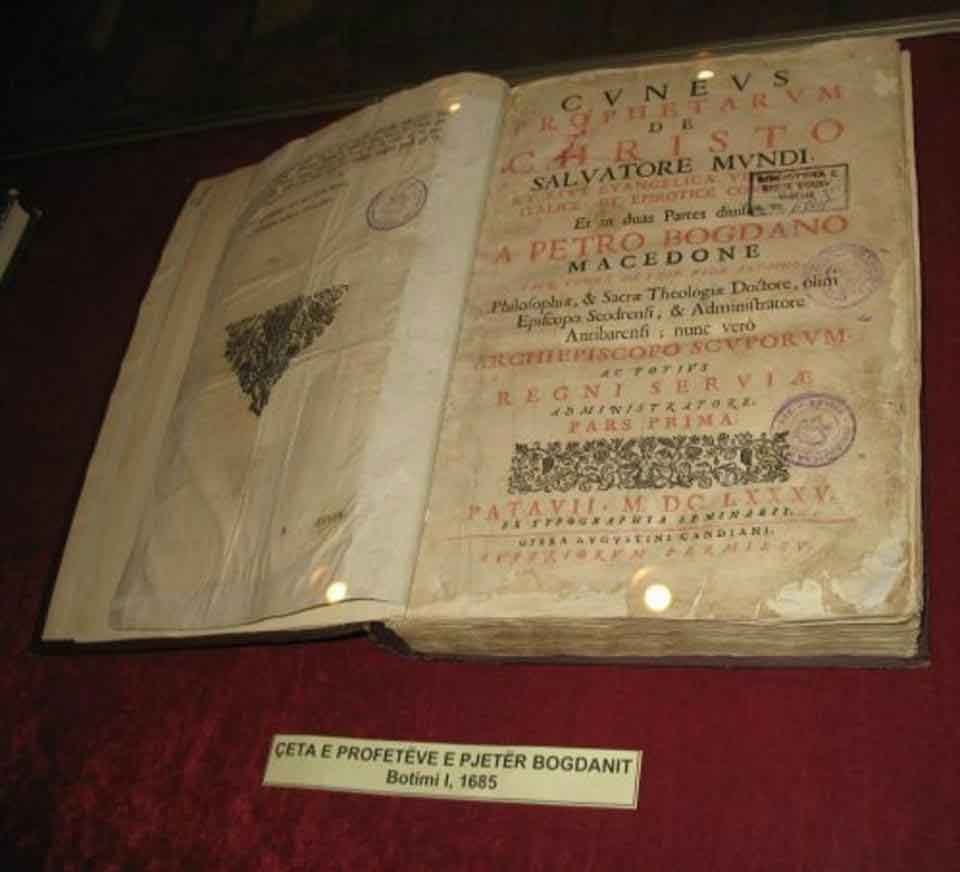 CVNEVS
PROPHETARVM
DE
CHRISTO
SALVATORE MVNDI.
EVANGELICA
ITALICE ET EPIROTICE
Et in duas Partes diuisa
A PETRO BOGDANO
MACEDONE
Philosophiæ, & Sacræ Theologiæ Doctore, olim
Episcopo Scodrensi, & Administratore
Antibarensi; nunc verò
ARCHIEPISCOPO SCVPORVM
AC TOTIVS
REGNI SERVIÆ
ADMINISTRATORE.
PARS PRIMA
PATAVII. M. DC. LXXXV.
EX TYPOGRAPHIA SEMINARII.
OPERA AVGVSTINI CANDIANI.
SVPERIORVM PERMISSV.
ÇETA E PROFETËVE E PJETËR BOGDANIT
Botimi I, 1685